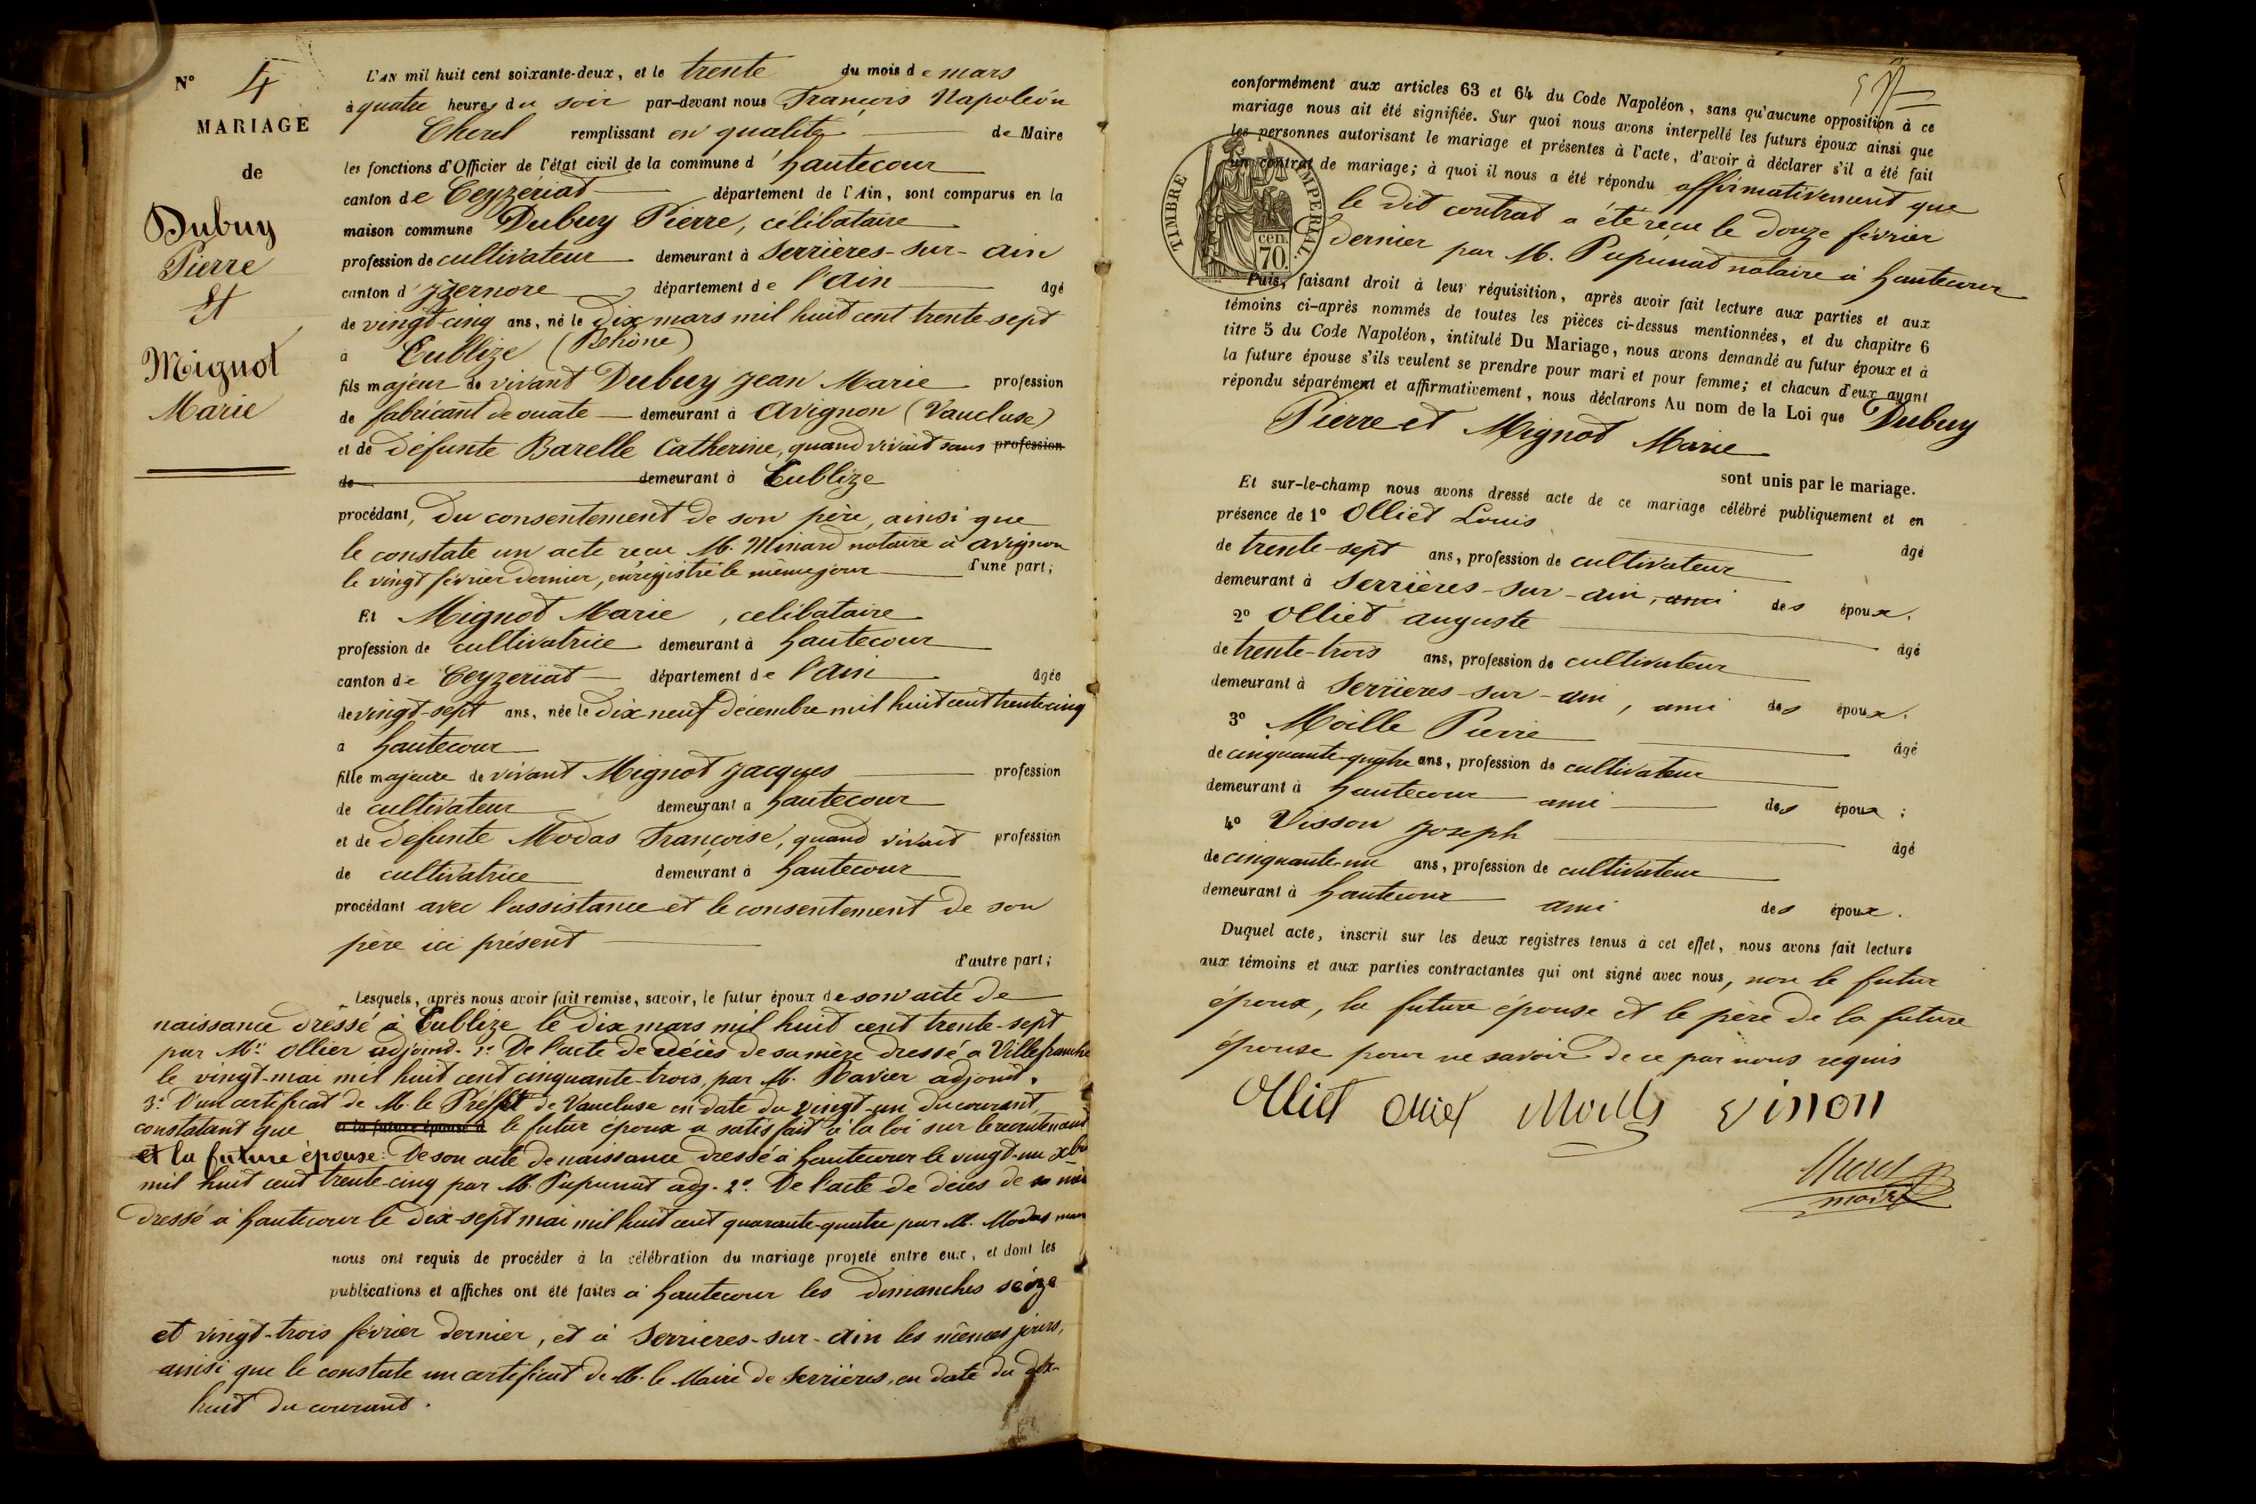 N° 4
MARIAGE
de
Dubuy
Pierre
et
Mignot
Marie
L'AN mil huit cent soixante-deux, et le trente du mois de mars
à quatre heures du soir par-devant nous François Napoléon
Cherel remplissant en qualité de Maire
les fonctions d'Officier de l'état civil de la commune d'hautecour
canton de Ceyzériat département de l'Ain, sont comparus en la
maison commune Dubuy Pierre, célibataire
profession de cultivateur demeurant à Serrières-sur-ain
canton d'Izernore département de l'ain âgé
de vingt-cinq ans, né le dix mars mil huit cent trente-sept
à Cublize (Rhône)
fils majeur de vivant Dubuy Jean Marie profession
de fabricant de ouate demeurant à avignon (Vaucluse)
et de défunte Barelle Catherine, quand vivait sans profession
de demeurant à Cublize
procédant, du consentement de son père, ainsi que
le constate un acte recu M. Minard notaire à avignon
le vingt février dernier, enregistré le même jour d'une part;
Et Mignot Marie, célibataire
profession de cultivatrice demeurant à hautecour
canton de Ceyzériat département de l'ain âgée
de vingt-sept ans, née le dix neuf décembre mil huit cent trente-cinq
à hautecour
fille majeure de vivant Mignot Jacques profession
de cultivateur demeurant à hautecour
et de défunte Modas Françoise, quand vivait profession
de cultivatrice demeurant à hautecour
procédant avec l'assistance et le consentement de son
père ici présent
d'autre part;
Lesquels, après nous avoir fait remise, savoir, le futur époux de son acte de
naissance dressé à Cublize le dix mars mil huit cent trente-sept
par Mr. Ollier adjoint. 2° De l'acte de décès de sa mère dressé à Villefranche
le vingt-mai mil huit cent cinquante-trois, par M. Ravier adjoint.
3° D'un certificat de M. le Préfet de Vaucluse en date du vingt-un du courant,
constatant que et la future épouse d le futur époux a satisfait à la loi sur le recrutement
et la future épouse: De son acte de naissance dressé à hautecour le vingt-un Xbre
mil huit cent trente-cinq par M. Pupunat adj. 2° De l'acte de décès de sa mère
dressé à hautecour le dix-sept mai mil huit cent quarante-quatre par M. Modas maire
nous ont requis de procéder à la célébration du mariage projeté entre eux, et dont les
publications et affiches ont été faites à hautecour les dimanches seize
et vingt-trois février dernier, et à Serrieres-sur-ain les mêmes jours,
ainsi que le constate un certificat de M. le Maire de Serrières, en date du dix-
huit du courant.
conformément aux articles 63 et 64 du Code Napoléon, sans qu'aucune opposition à ce
mariage nous ait été signifiée. Sur quoi nous avons interpellé les futurs époux ainsi que
les personnes autorisant le mariage et présentes à l'acte, d'avoir à déclarer s'il a été fait
un contrat de mariage; à quoi il nous a été répondu affirmativement que
le dit contrat a été recu le douze février
dernier par M. Pupunat notaire à hautecour
TIMBRE IMPERIAL.
70 cen.
Puis, faisant droit à leur réquisition, après avoir fait lecture aux parties et aux
témoins ci-après nommés de toutes les pièces ci-dessus mentionnées, et du chapitre 6
titre 5 du Code Napoléon, intitulé Du Mariage, nous avons demandé au futur époux et à
la future épouse s'ils veulent se prendre pour mari et pour femme; et chacun d'eux ayant
répondu séparément et affirmativement, nous déclarons Au nom de la Loi que Dubuy
Pierre et Mignot Marie
sont unis par le mariage.
Et sur-le-champ nous avons dressé acte de ce mariage célébré publiquement et en
présence de 1° Olliet Louis âgé
de trente-sept ans, profession de cultivateur
demeurant à Serrières-sur-ain, ami des époux.
2° Olliet auguste âgé
de trente-trois ans, profession de cultivateur
demeurant à Serrieres-sur-ain, ami des époux.
3° Moille Pierre âgé
de cinquante-quatre ans, profession de cultivateur
demeurant à hautecour ami des époux;
4° Visson Joseph âgé
de cinquante-un ans, profession de cultivateur
demeurant à hautecour ami des époux.
Duquel acte, inscrit sur les deux registres tenus à cet effet, nous avons fait lecture
aux témoins et aux parties contractantes qui ont signé avec nous, non le futur
époux, la future épouse et le père de la future
épouse pour ne savoir de ce par nous requis
Olliet Olliet Moille Vinon
Cherel
maire